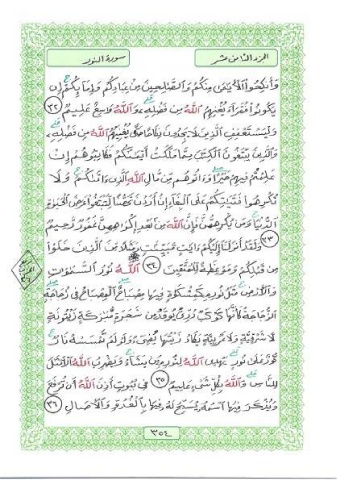 الجزء الثامن عشر
سورة النور
وَأَنكِحُوا۟ ٱلْأَيَـٰمَىٰ مِنكُمْ وَٱلصَّـٰلِحِينَ مِنْ عِبَادِكُمْ وَإِمَآئِكُمْ إِن
يَكُونُوا۟ فُقَرَآءَ يُغْنِهِمُ ٱللَّهُ مِن فَضْلِهِۦ وَٱللَّهُ وَٰسِعٌ عَلِيمٌ ٣٢
وَلْيَسْتَعْفِفِ ٱلَّذِينَ لَا يَجِدُونَ نِكَاحًا حَتَّىٰ يُغْنِيَهُمُ ٱللَّهُ مِن فَضْلِهِۦ
وَٱلَّذِينَ يَبْتَغُونَ ٱلْكِتَـٰبَ مِمَّا مَلَكَتْ أَيْمَـٰنُكُمْ فَكَاتِبُوهُمْ إِنْ
عَلِمْتُمْ فِيهِمْ خَيْرًا وَءَاتُوهُم مِّن مَّالِ ٱللَّهِ ٱلَّذِىٓ ءَاتَىٰكُمْ وَلَا
تُكْرِهُوا۟ فَتَيَـٰتِكُمْ عَلَى ٱلْبِغَآءِ إِنْ أَرَدْنَ تَحَصُّنًا لِّتَبْتَغُوا۟ عَرَضَ ٱلْحَيَوٰةِ
ٱلدُّنْيَا وَمَن يُكْرِههُّنَّ فَإِنَّ ٱللَّهَ مِنۢ بَعْدِ إِكْرَٰهِهِنَّ غَفُورٌ رَّحِيمٌ
٣٣ وَلَقَدْ أَنزَلْنَآ إِلَيْكُمْ ءَايَـٰتٍ مُّبَيِّنَـٰتٍ وَمَثَلًا مِّنَ ٱلَّذِينَ خَلَوْا۟
مِن قَبْلِكُمْ وَمَوْعِظَةً لِّلْمُتَّقِينَ ٣٤ ٱللَّهُ نُورُ ٱلسَّمَـٰوَٰتِ
وَٱلْأَرْضِ مَثَلُ نُورِهِۦ كَمِشْكَوٰةٍ فِيهَا مِصْبَاحٌ ٱلْمِصْبَاحُ فِى زُجَاجَةٍ
ٱلزُّجَاجَةُ كَأَنَّهَا كَوْكَبٌ دُرِّىٌّ يُوقَدُ مِن شَجَرَةٍ مُّبَـٰرَكَةٍ زَيْتُونَةٍ
لَّا شَرْقِيَّةٍ وَلَا غَرْبِيَّةٍ يَكَادُ زَيْتُهَا يُضِىٓءُ وَلَوْ لَمْ تَمْسَسْهُ نَارٌ
نُّورٌ عَلَىٰ نُورٍ يَهْدِى ٱللَّهُ لِنُورِهِۦ مَن يَشَآءُ وَيَضْرِبُ ٱللَّهُ ٱلْأَمْثَـٰلَ
لِلنَّاسِ وَٱللَّهُ بِكُلِّ شَىْءٍ عَلِيمٌ ٣٥ فِى بُيُوتٍ أَذِنَ ٱللَّهُ أَن تُرْفَعَ
وَيُذْكَرَ فِيهَا ٱسْمُهُۥ يُسَبِّحُ لَهُۥ فِيهَا بِٱلْغُدُوِّ وَٱلْـَٔاصَالِ ٣٦
٣٥٤